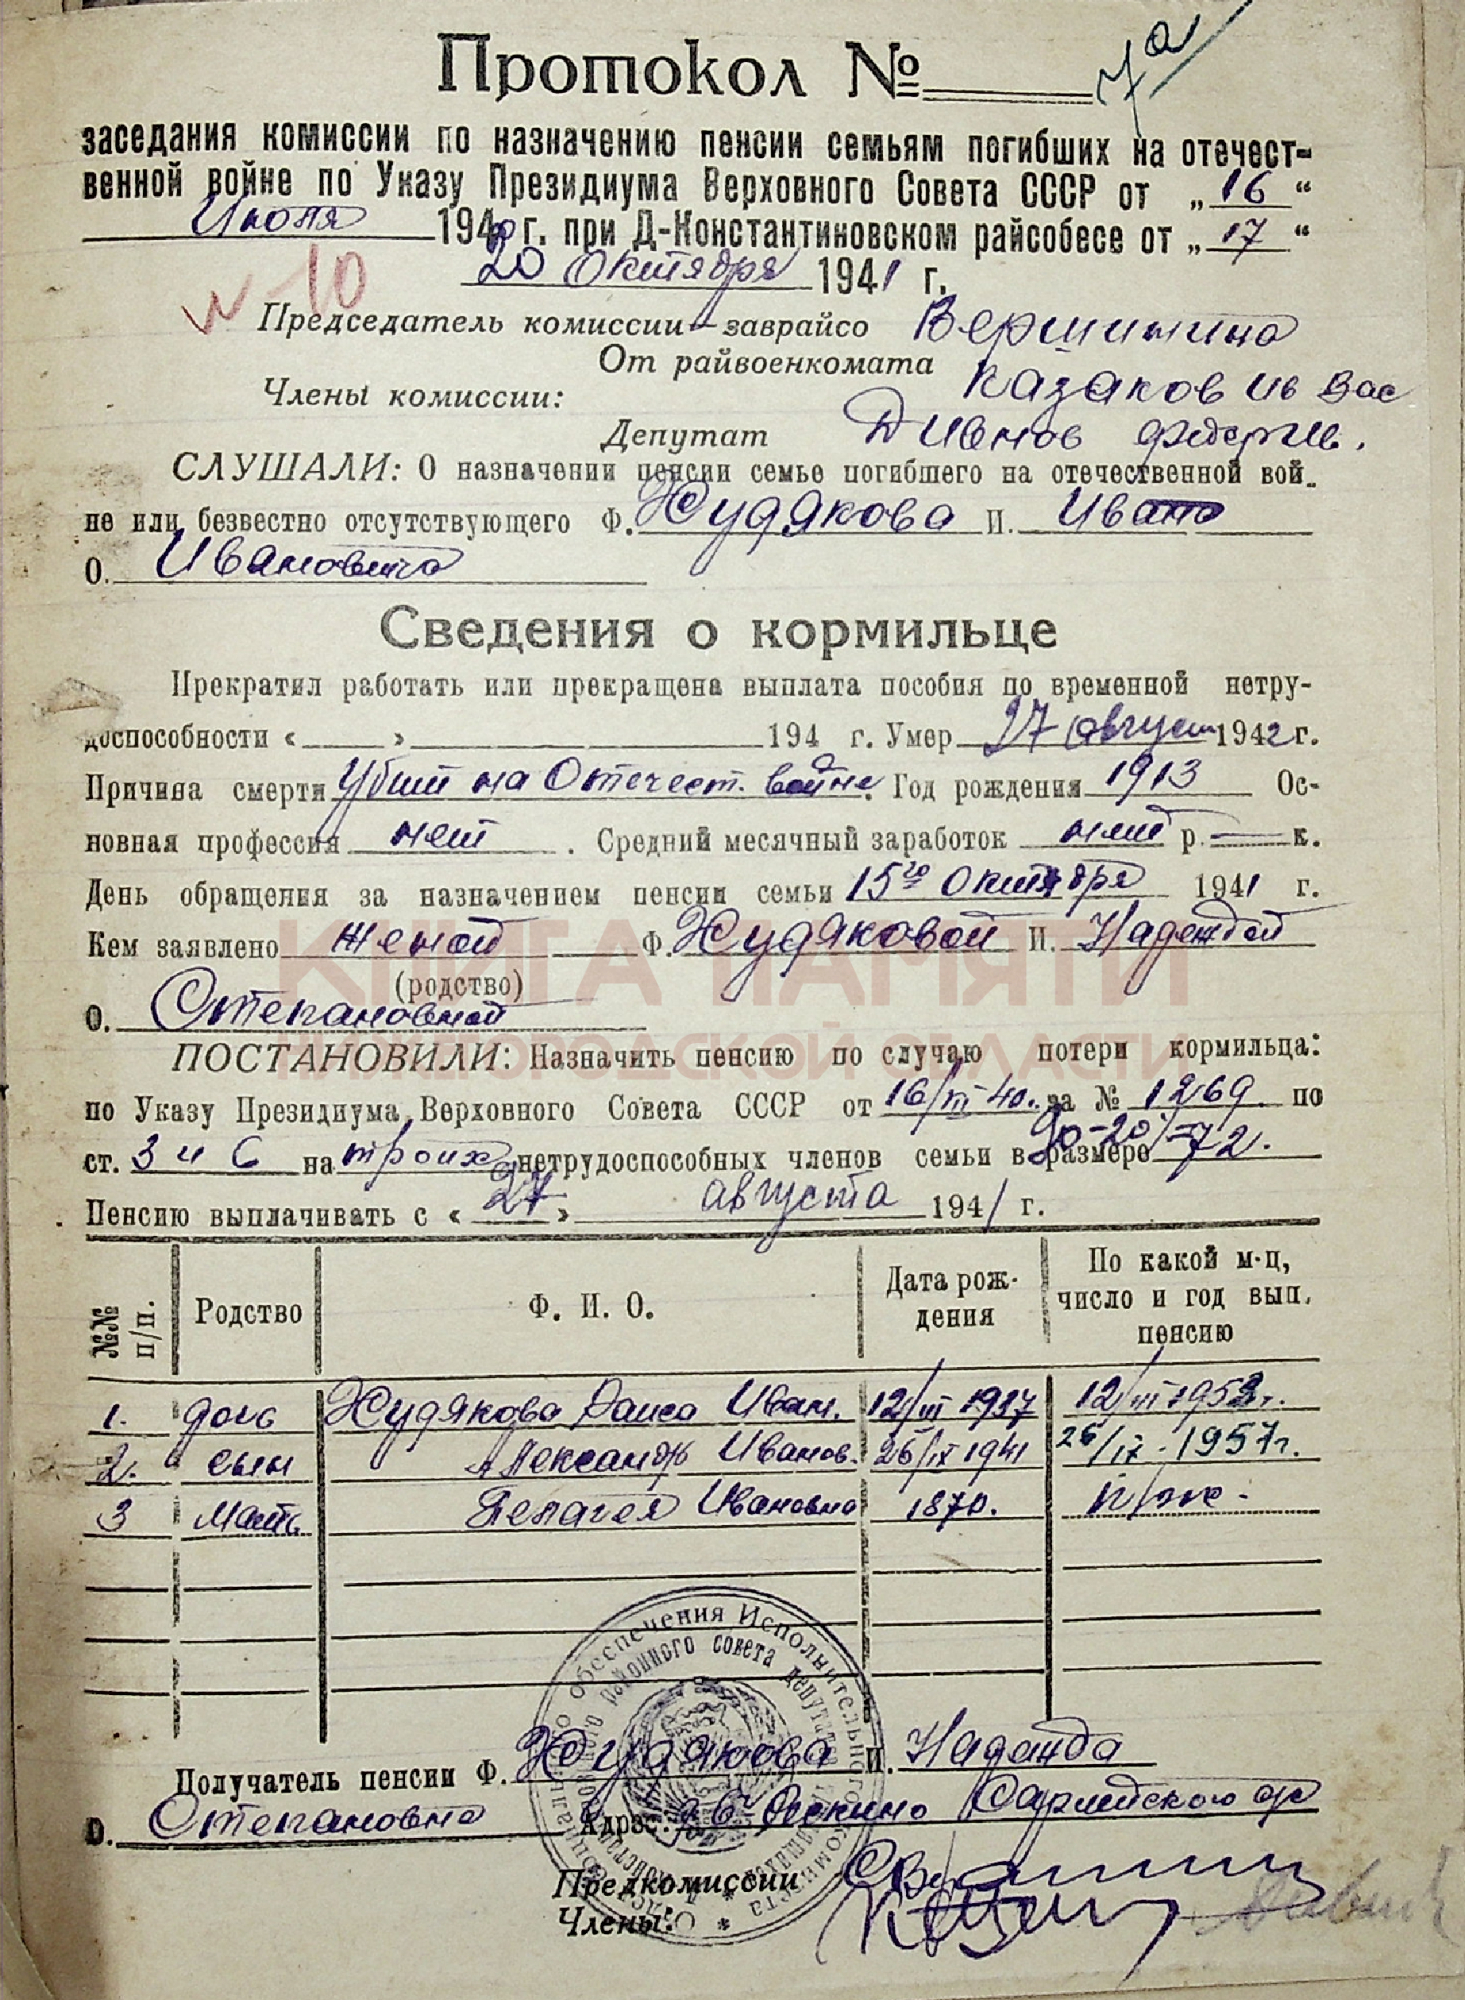 Протокол № 7а
заседания комиссии по назначению пенсии семьям погибших на отечест-
венной войне по Указу Президиума Верховного Совета СССР от „16“
Июля 1940 г. при Д-Константиновском райсобесе от „17“
20 Октября 1941 г.
№ 10
Председатель комиссии—заврайсо Вершинина
От райвоенкомата Казаков Ив Вас
Члены комиссии:
Депутат
СЛУШАЛИ: О назначении пенсии семье погибшего на отечественной вой-
не или безвестно отсутствующего Ф. Худякова И. Ивана
О. Ивановича
Сведения о кормильце
Прекратил работать или прекращена выплата пособия по временной нетру-
доспособности « » 194 г. Умер 27 август 1942 г.
Причина смерти Убит на Отечест. войне. Год рождения 1913 Ос-
новная профессия нет. Средний месячный заработок нет р. — к.
День обращения за назначением пенсии семьи 15го Октября 1941 г.
Кем заявлено женой Ф. Худяковой И. Надеждой
(родство)
О. Степановной
КНИГА ПАМЯТИ
НИЖЕГОРОДСКОЙ ОБЛАСТИ
ПОСТАНОВИЛИ: Назначить пенсию по случаю потери кормильца:
по Указу Президиума Верховного Совета СССР от 16/VII-40. за № 1269. по
ст. 3 и 6 на троих нетрудоспособных членов семьи в размере 90-20%=72.
Пенсию выплачивать с « 27 » августа 1941 г.
№№ п/п. Родство Ф. И. О. Дата рождения По какой м-ц, число и год вып. пенсию
1. дочь Худякова Раиса Иван. 12/III 1937 12/III 1953 г.
2. сын Александр Иванов. 26/IX 1941 26/IX-1957 г.
3 Мать Пелагея Ивановна 1870. п/ж.
Получатель пенсии Ф. Худякова И. Надежда
О. Степановна Адрес:
Предкомиссии
Члены: